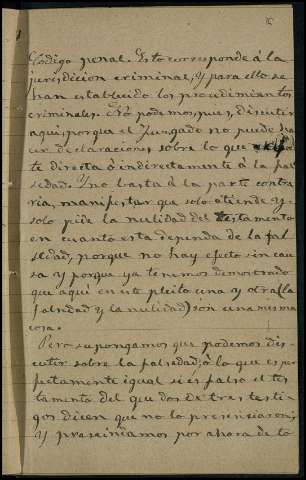 Código penal. Esto corresponde á la
jurisdicion criminal, y para ello se
han establecido los procedimientos
criminales. No podemos, pues, discutir
aqui, porque el Juzgado no puede ha
cer declaraciones sobre lo que
te directa ó indirectamente á la fal
sedad. Y no basta á la parte contra
ria, manifestar que solo atiende y
solo pide la nulidad del testamento
en cuanto esta dependa de la fal
sedad, porque no hay efecto sin cau
sa y porque ya tenemos demostrado
que aqui en este pleito una y otra (la
falsedad y la nulidad) son una misma
cosa.
Pero supongamos que podemos dis-
cutir sobre la falsedad; ó lo que es per
fectamente igual si es falso el tes
tamento del que dos de tres testi
gos dicen que no lo presenciaron;
y prescindamos por ahora de lo